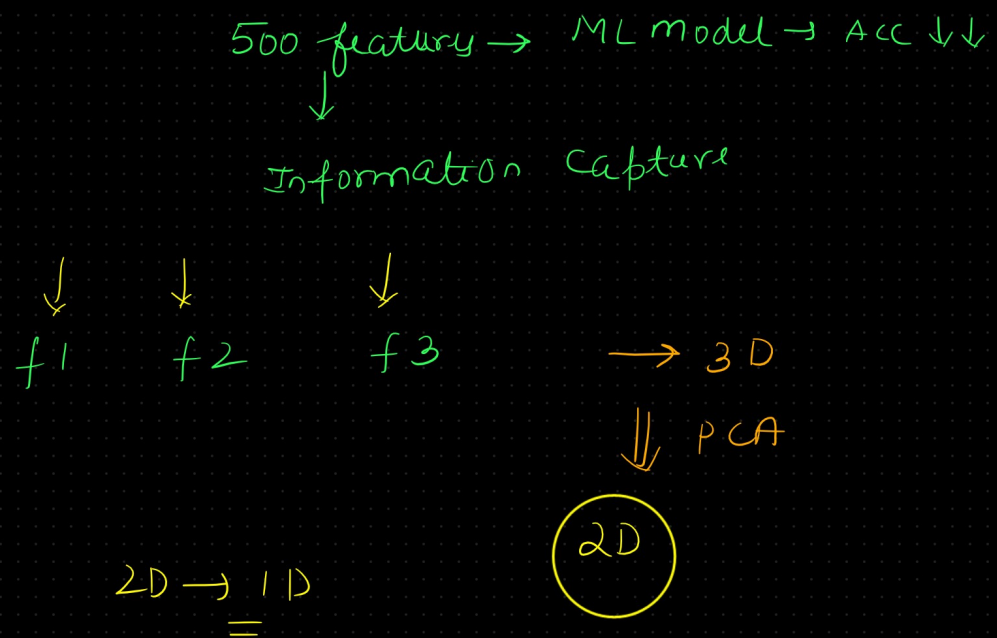 500 features → ML model → ACC ↓↓
↓
Information Capture
↓ ↓ ↓
f1 f2 f3 → 3D
⇓ PCA
2D
2D → 1D